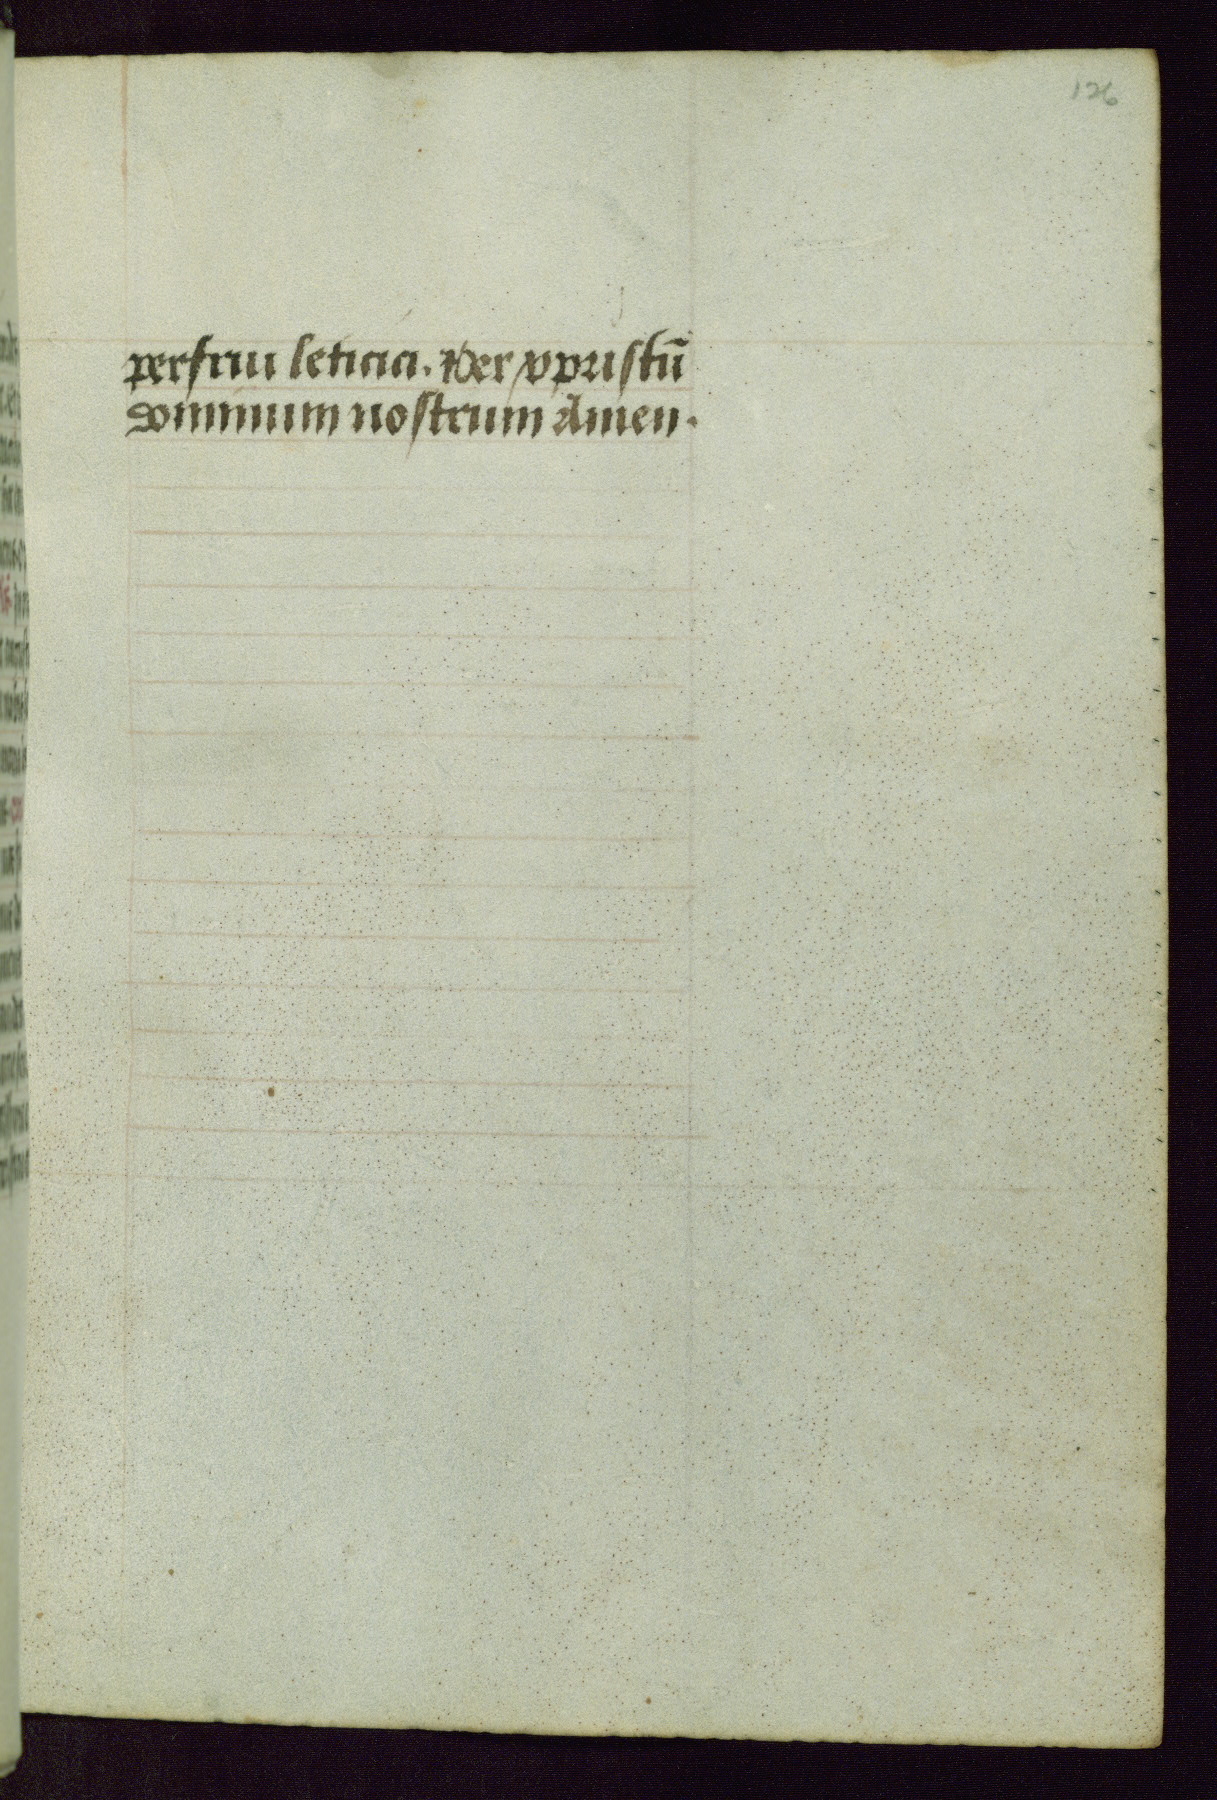 126
perfrui leticia. Per xpristū
dominum nostrum Amen.